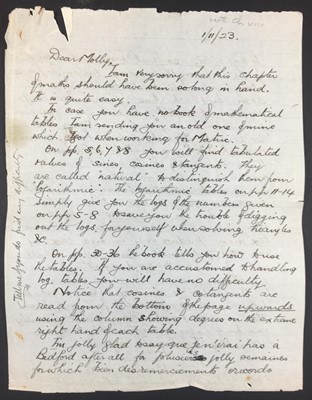 1/11/23.
Dear Molly,
I am very sorry that this chapter
of maths should have been so long in hand.
It is quite easy.
In case you have no book of mathematical
tables I am sending you an old one of mine
which I got when working for Matric.
On pp 5, 6, 7 & 8 you will find tabulated
values of sines, cosines & tangents. They
are called "natural" to distinguish them from
"logarithmic". The logarithmic tables on pp 11-14
simply give you the logs of the numbers given
on pp. 5-8 to save you the trouble of digging
out the logs, for yourself when solving triangles
&c.
On pp. 30-36 the book tells you how to use
the tables. If you are accustomed to handling
log. tables you will have no difficulty.
Notice that cosines & cotangents are
read from the bottom of the page upwards
using the column showing degrees on the extreme
right hand of each table.
I'm jolly glad to say que j'en'irai
Bedford after all for plusieurs jolly semaines
for which bien des remerciements
(Tell me if you do find any difficulty)